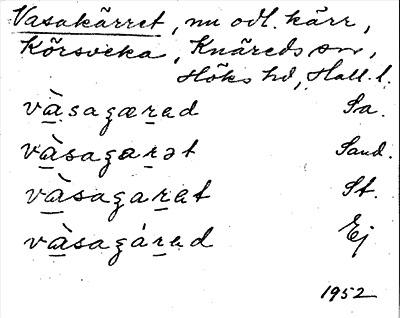 Vasakärret, nu odl. kärr,
Körsveka, Knäreds sn,
Höks hd, Hall. l.
và̱saɡæṟed Sa.
và̱saɡæṟət Sand.
và̱saɡaṟet St.
và̱saɡáṟed Ej
1952